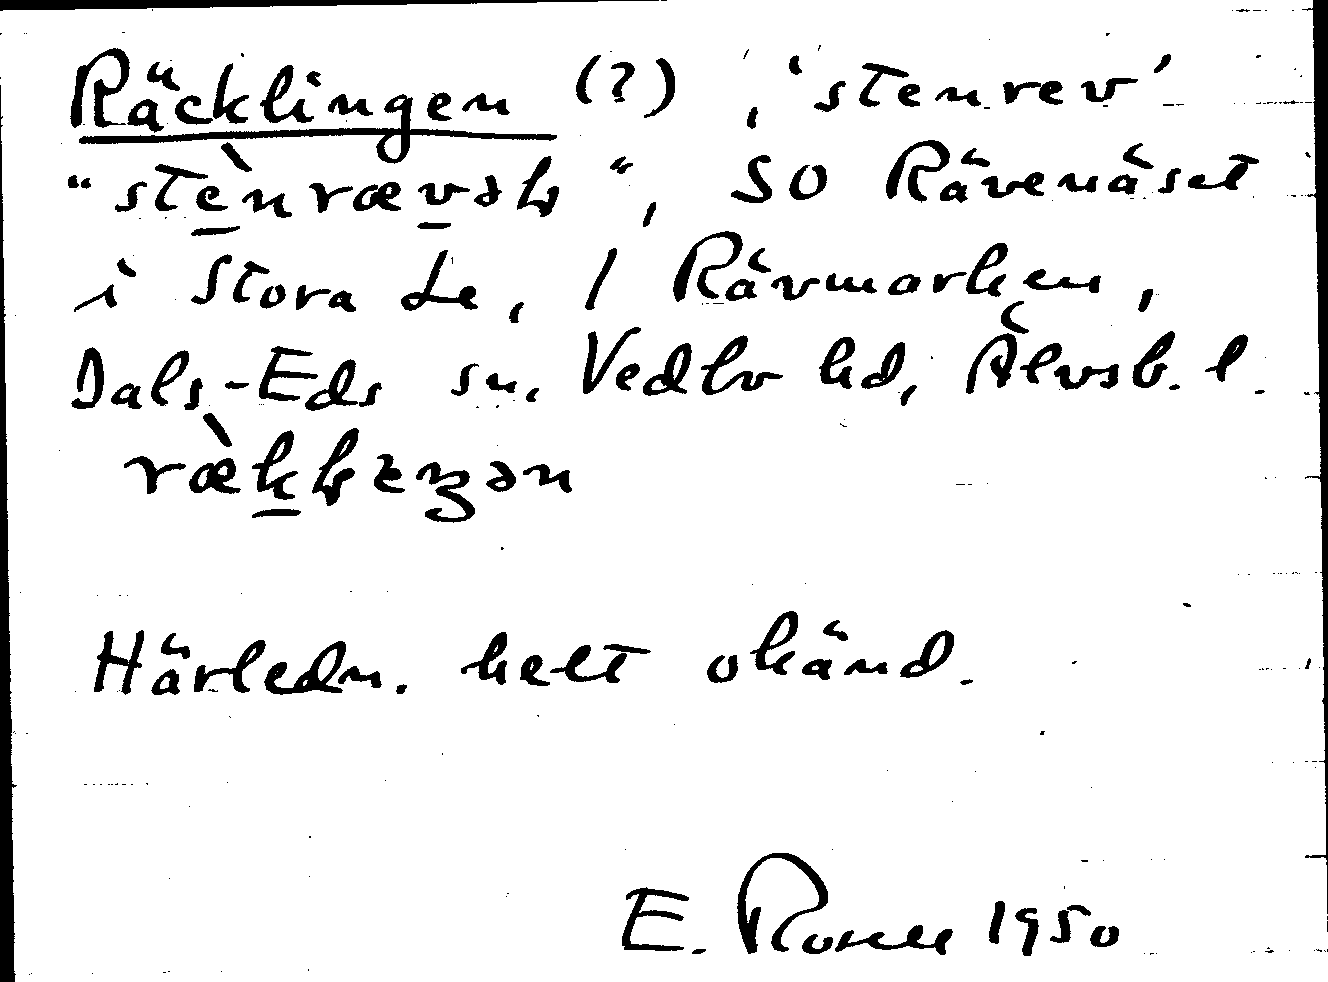 Räcklingen (?), 'stenrev'
"stènrævəɫ", SO Rävenäset
i Stora Le, / Rävmarken,
Dals-Eds sn. Vedbo hd, Älvsb. l.
ræ̀kɫɪŋən
Härledn. helt okänd.
E. Rosell 1950